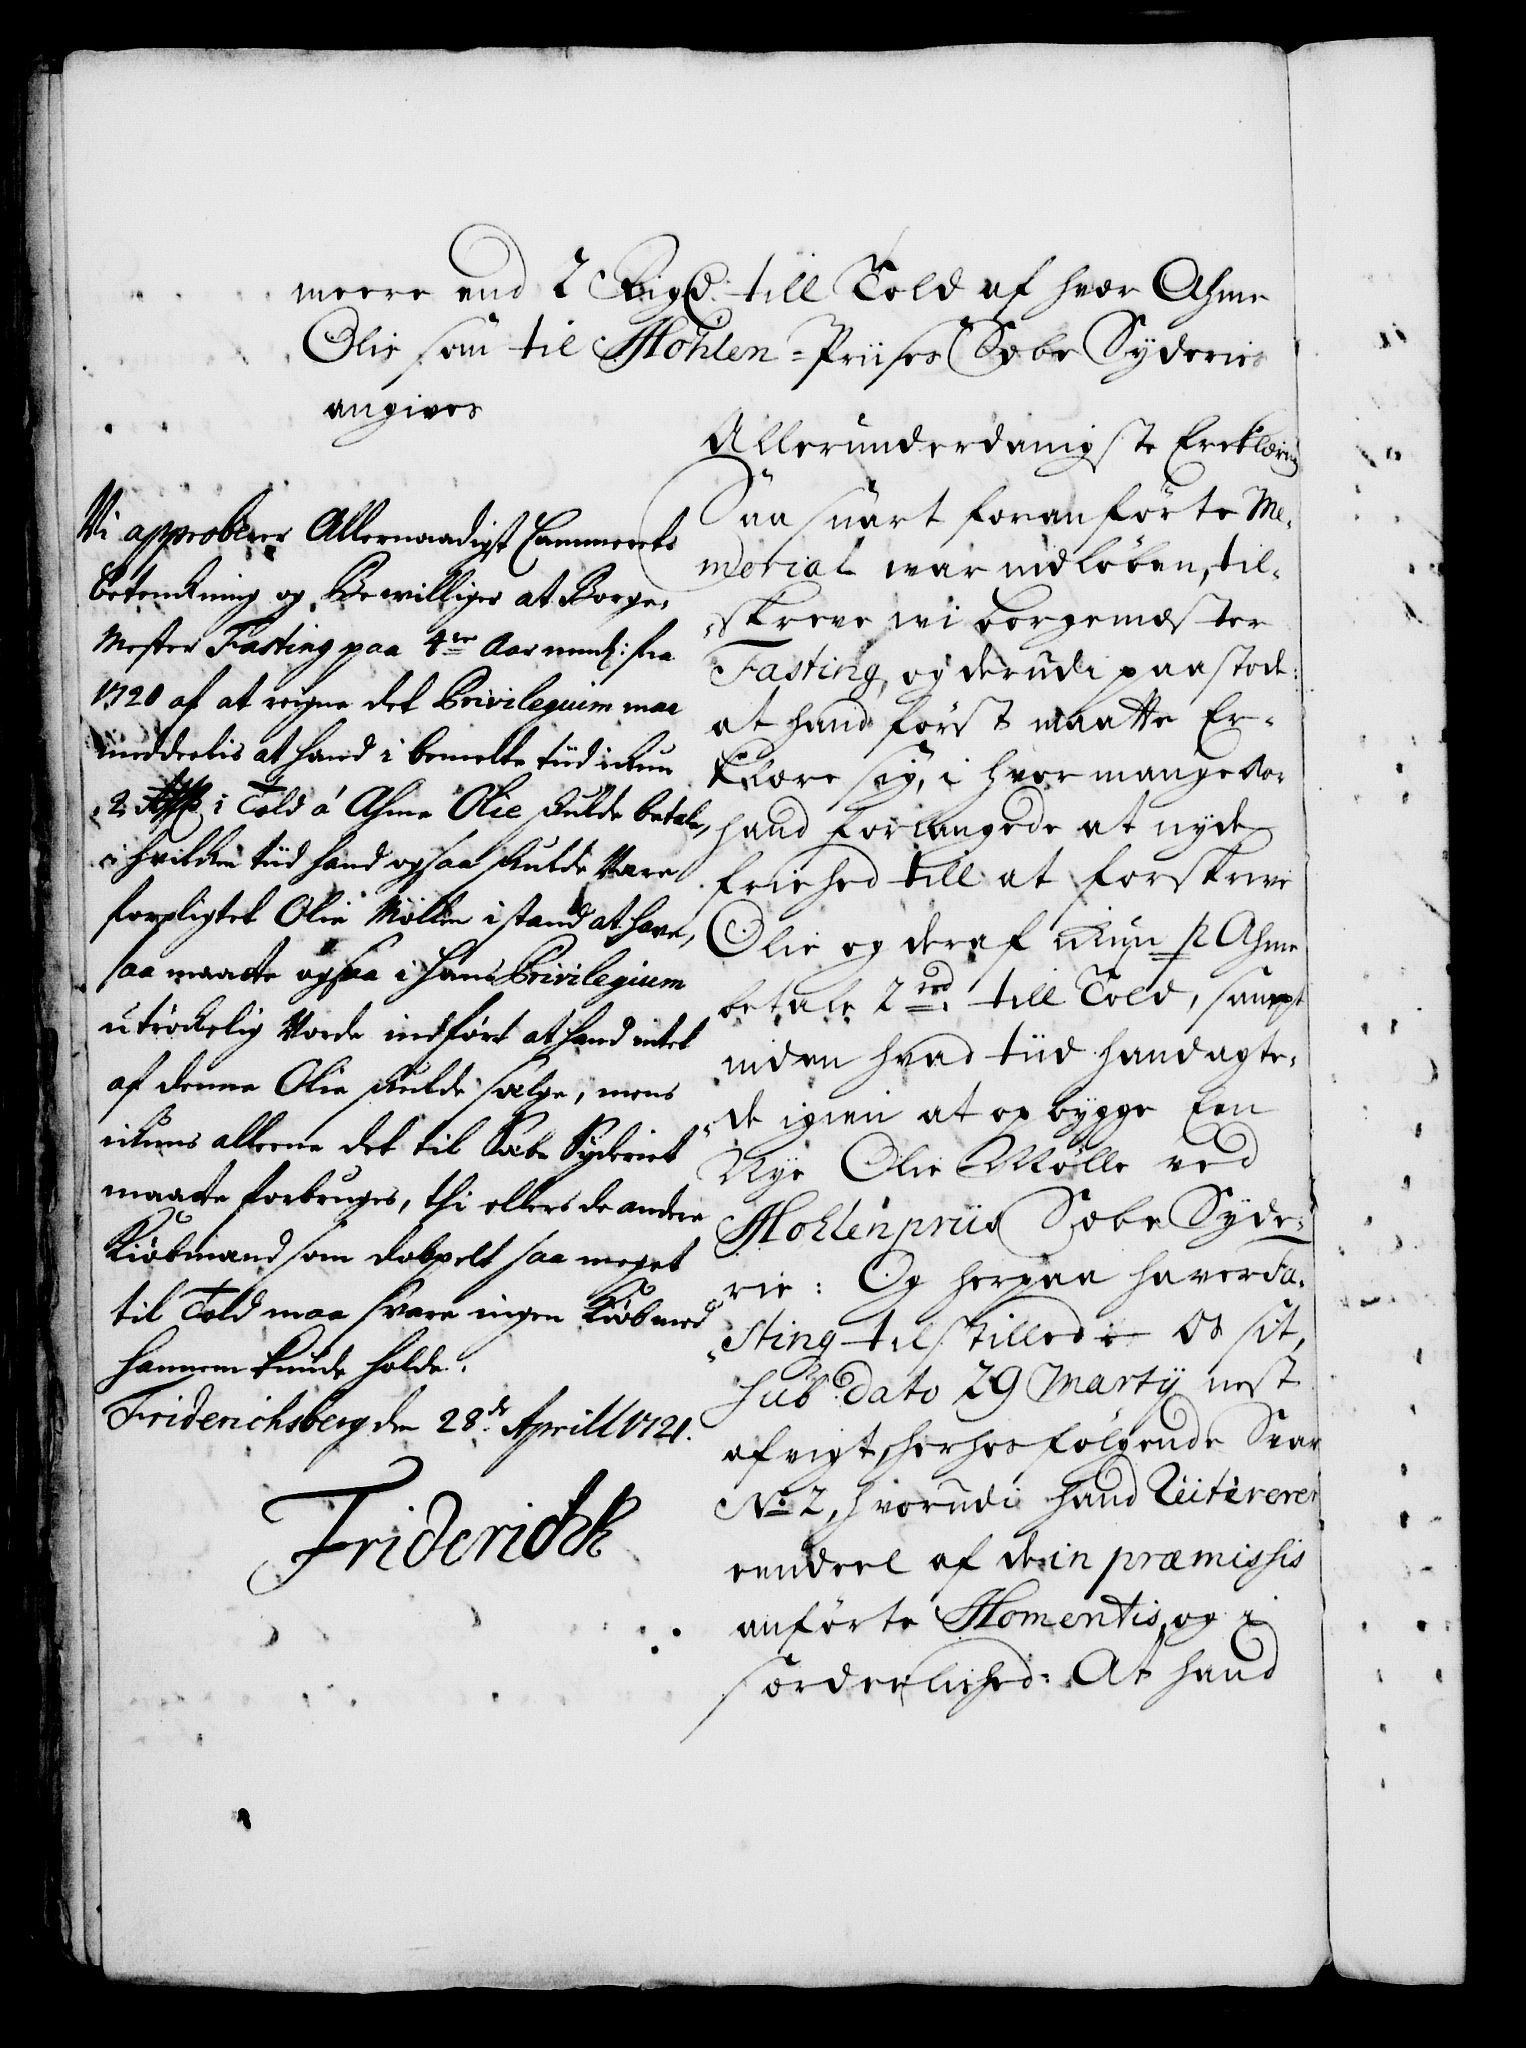 meere end 2 Rigsd. till Told af hver Ahme
Olie som til Mohlen-Priises Sæbe Syderies
angives
Vi approberer Allernaadigst Cammerets
betenckning og Bewilliger at Borge,
Mester Fasting paa 4re Aar nemlig: fra
1720 af at reigne det Privilegium maa
meddeelis at hand i bemelte tiid ickun
2 Rdr i Told á Ahme Olie skulde betale,
i hvilcken tiid hand ogsaa skulde Være
forpligtet Olie Møllen i stand at have,
saa maatte ogsaa i hans Privilegium
utrockelig Vorde indført at hand intet
af denne Olie skulde sælge, mens
ickuns alleene det til Sæbe Syderiet
maatte forbruges, thi ellers de andere
Kiøbmænd som dobbelt saa meget
til Told maa svare ingen Kiøb med
hannem kunde holde.
Friderichsberg den 28de Aprill 1721.
Friderich R
Allerunderdanigste Erklæring
Saa snart foranførte Me,
morial war indløben, til,
skreve wi borgemæster
Fasting, og derudi paastode:
at hand først maatte Er-
klære sig, i hvor mange Aar
hand forlangede at nyde
friehed till at forskrive
Olie og deraf ickun pr Ahme
betale 2 rd. till Told, sampt
inden hvad tiid hand agte,
de igien at opbygge Een
Nye Olie Mølle ved
Mohlenpriis Sæbe Syde,
rie: Og herpaa haver Fa,
sting tilskilled Os sit,
sub dato 29 Martij nest
afvigt, herhos følgende Svar
No 2, hvorudi hand Reitererer
eendeel af de in præmissis
anførte Momentis, og i
særdeelished: At hand